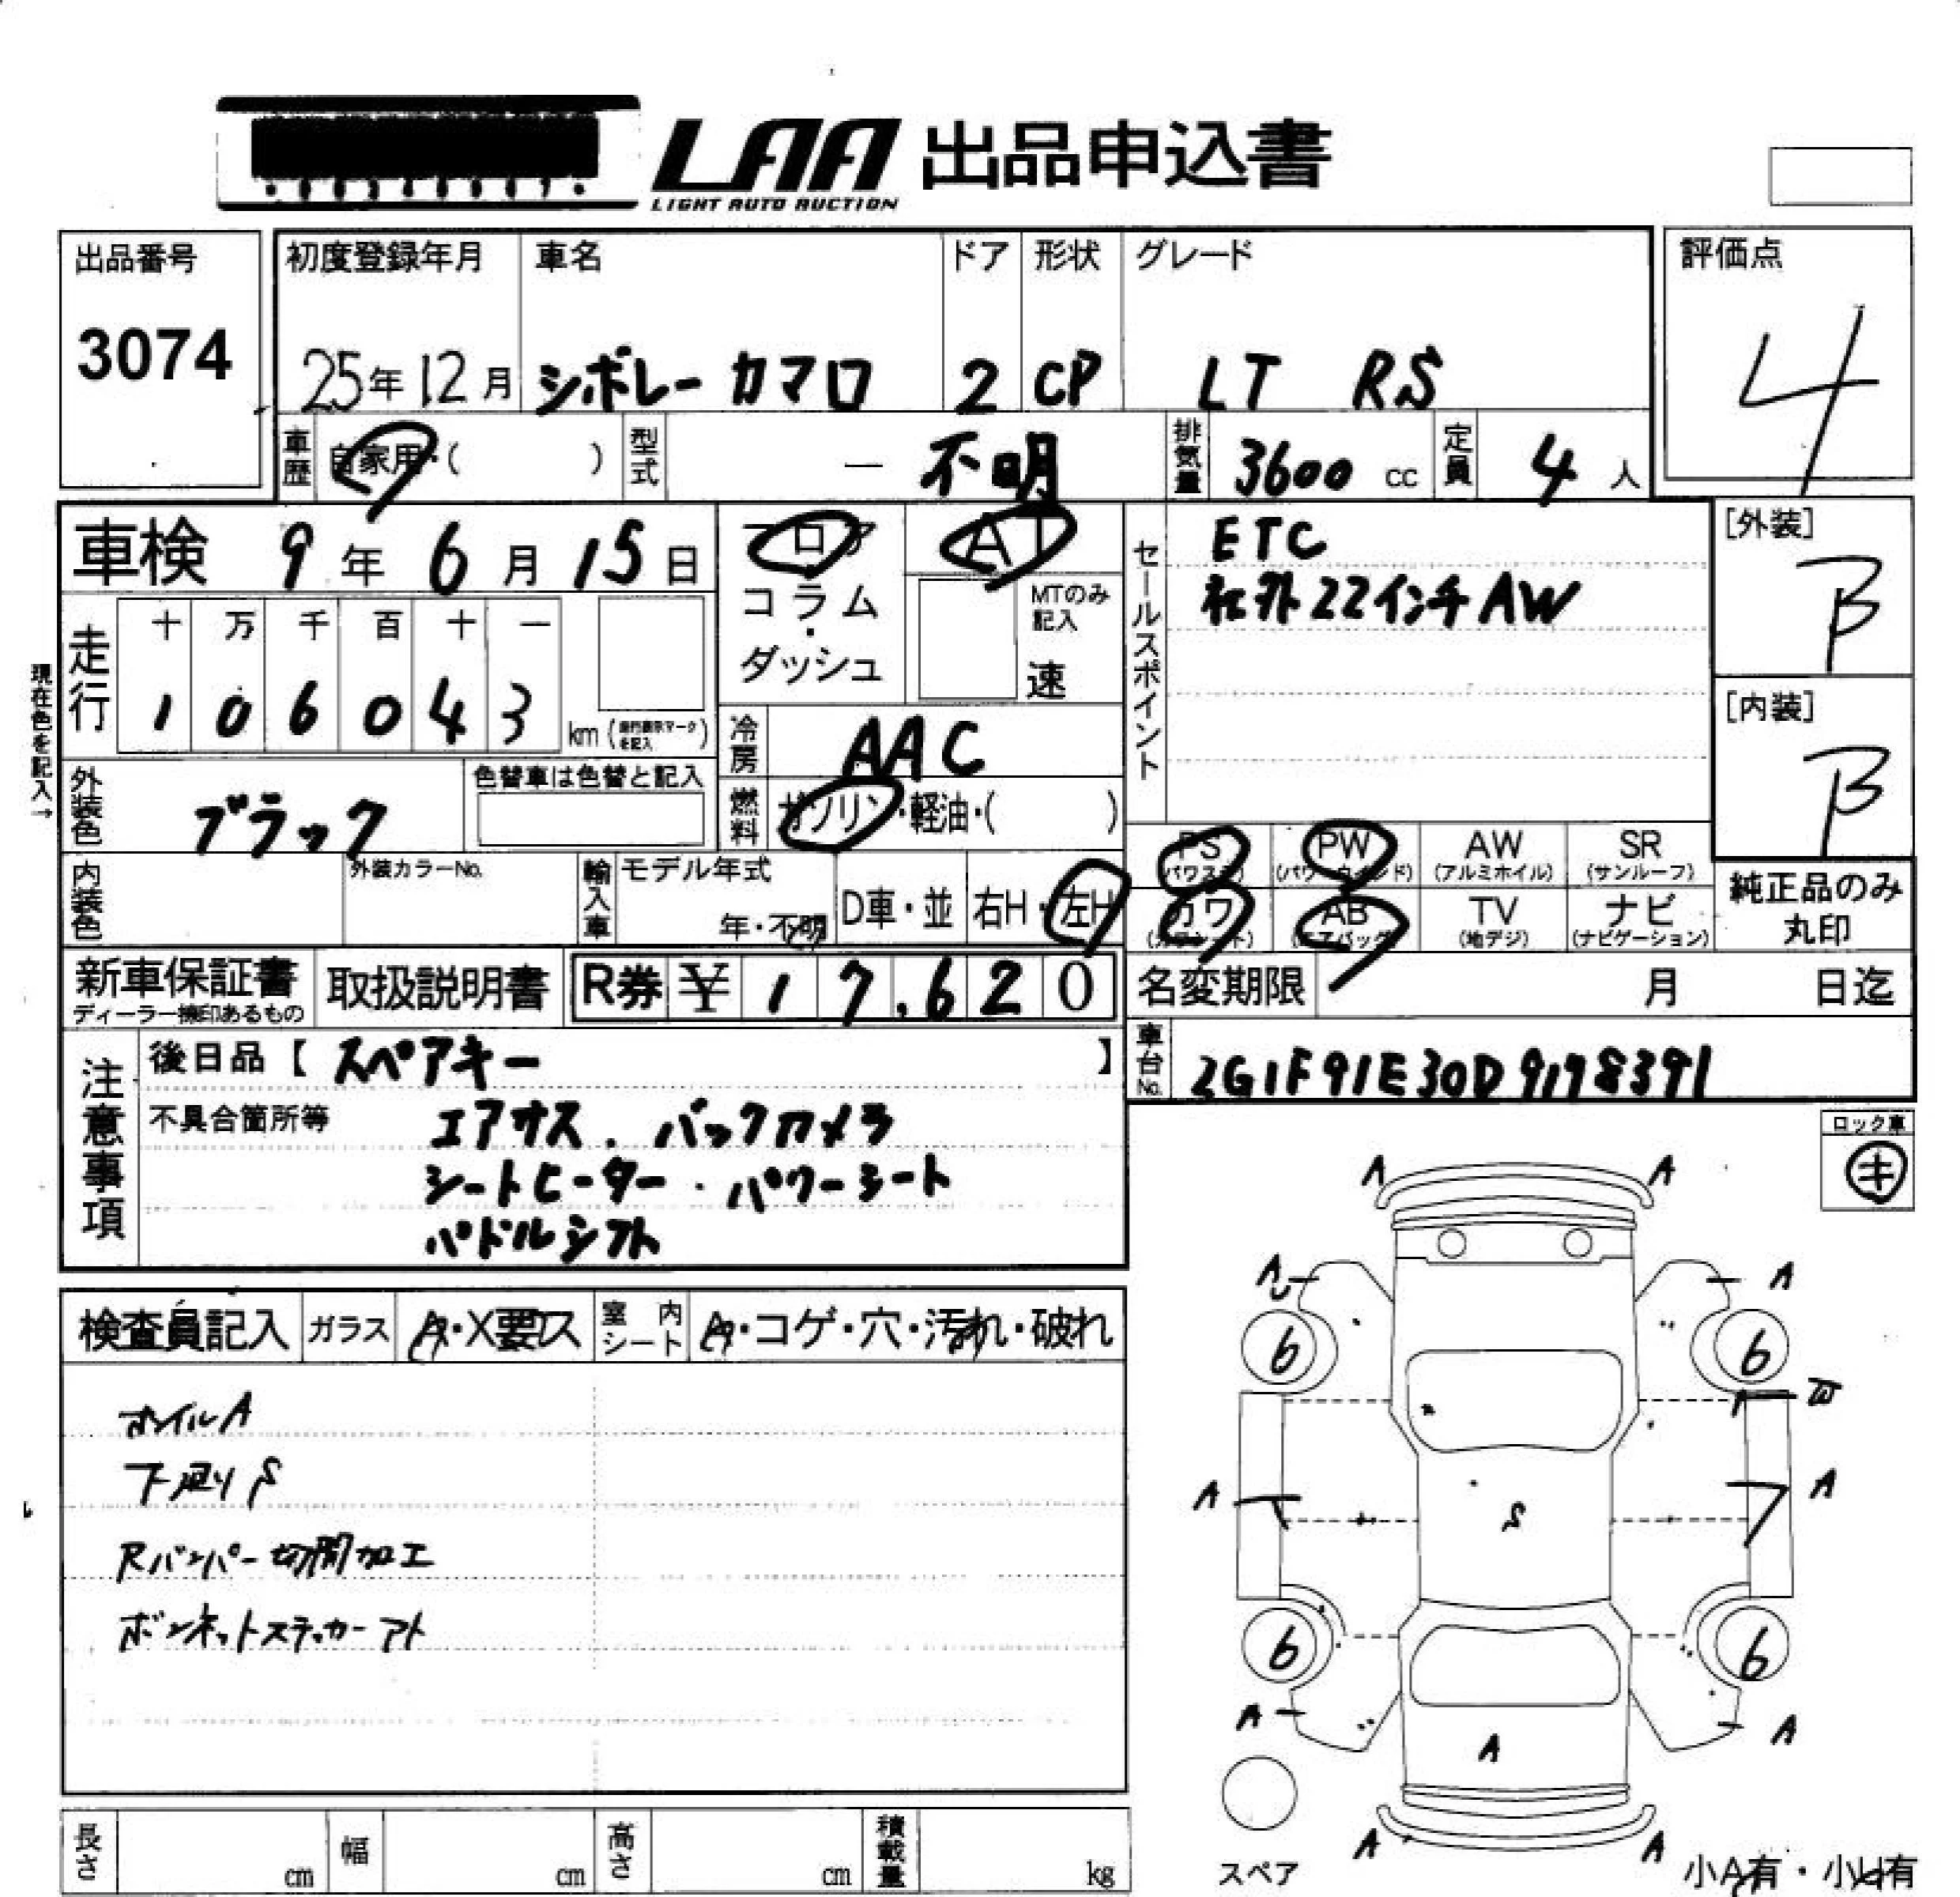 LAA 出品申込書
LIGHT AUTO AUCTION
出品番号
3074
初度登録年月
25年12月
車名
シボレー カマロ
ドア
2
形状
CP
グレード
LT RS
評価点
4
車歴
自家用・( )
型式
— 不明
排気量
3600 cc
定員
4 人
車検 9年 6月 15日
フロア
コラム
・
ダッシュ
AT
MTのみ
記入
速
セールスポイント
ETC
社外22インチAW
[外装]
B
[内装]
B
現在色を記入→
走行
十 万 千 百 十 一
1 0 6 0 4 3
km (走行表示マークを記入)
冷房
AAC
燃料
ガソリン・軽油・( )
外装色
ブラック
色替車は色替と記入
内装色
外装カラーNo.
輸入車
モデル年式
年・不明
D車・並
右H・左H
PS
(パワステ)
PW
(パワーウィンド)
AW
(アルミホイル)
SR
(サンルーフ)
カワ
(カワシート)
AB
(エアバッグ)
TV
(地デジ)
ナビ
(ナビゲーション)
純正品のみ
丸印
新車保証書
ディーラー捺印あるもの
取扱説明書
R券 ¥ 17,620
名変期限 月 日迄
注意事項
後日品【 スペアキー 】
不具合箇所等
エアサス . バックカメラ
シートヒーター . パワーシート
パドルシフト
車台No.
2G1F91E30D9178391
ロック車
キ
検査員記入
ガラス
A・X要ス
室内シート
A・コゲ・穴・汚れ・破れ
ホイルA
下廻りS
Rバンパー切開加工
ボンネットステッカーアト
A A
A
6 6
W
A A
S
6 6
A A
A
A A
スペア
小A有・小U有
長さ cm
幅 cm
高さ cm
積載量 kg